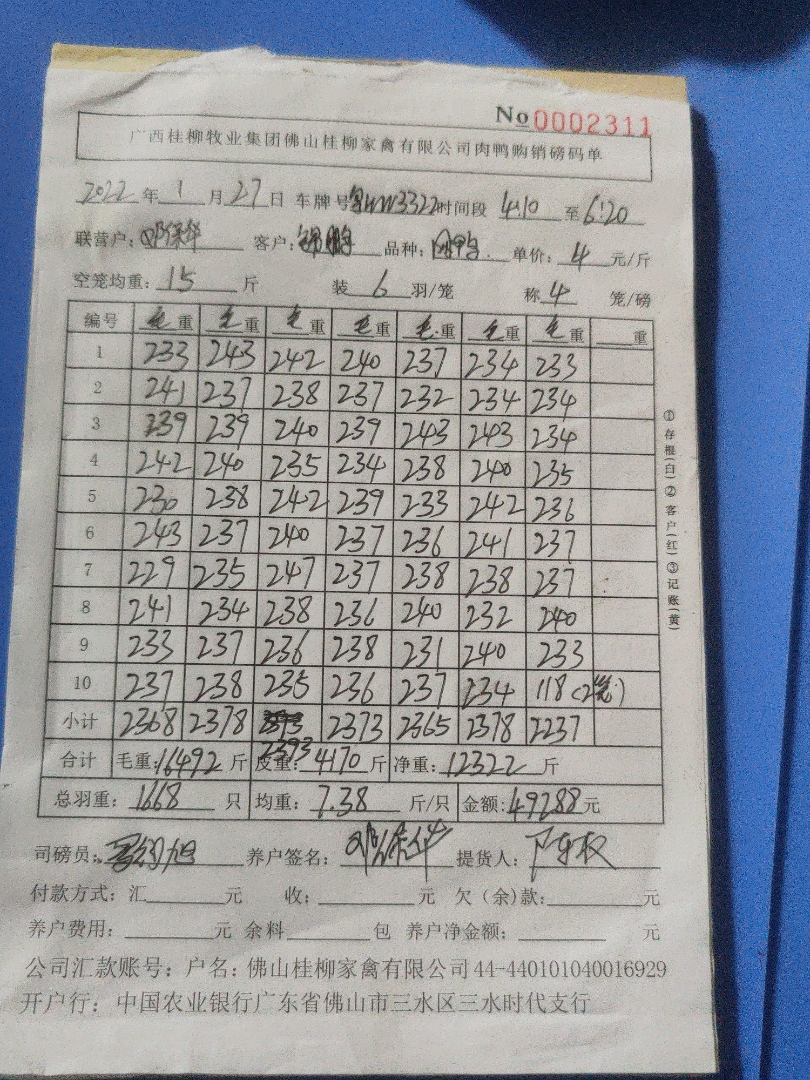 No 0002311
广西桂柳牧业集团佛山桂柳家禽有限公司肉鸭购销磅码单
2022 年 1 月 27 日 车牌号 粤WW3322 时间段 4:10 至 6:20
联营户: 邓保华 客户: 锦鹏 品种: 单价: 4 元/斤
空笼均重: 15 斤 装 6 羽/笼 称 4 笼/磅
编号 毛重 毛重 毛重 毛重 毛重 毛重 毛重 重
1 233 243 242 240 237 234 233
2 241 237 238 237 232 234 234
3 239 239 240 239 243 243 234
4 242 240 235 234 238 240 235
5 230 238 242 239 233 242 236
6 243 237 240 237 236 241 237
7 229 235 247 237 238 238 237
8 241 234 238 236 240 232 240
9 233 237 236 238 231 240 233
10 237 238 235 236 237 234 118(2笼)
小计 2368 2378 2393 2373 2365 2378 2237
合计 毛重: 16492 斤 皮重: 4170 斤 净重: 12322 斤
总羽重: 1668 只 均重: 7.38 斤/只 金额: 49288 元
司磅员: 养户签名: 邓保华 提货人:
付款方式: 汇 元 收: 元 欠(余)款: 元
养户费用: 元 余料 包 养户净金额: 元
公司汇款账号: 户名: 佛山桂柳家禽有限公司 44-440101040016929
开户行: 中国农业银行广东省佛山市三水区三水时代支行
①存根(白)②客户(红)③记账(黄)